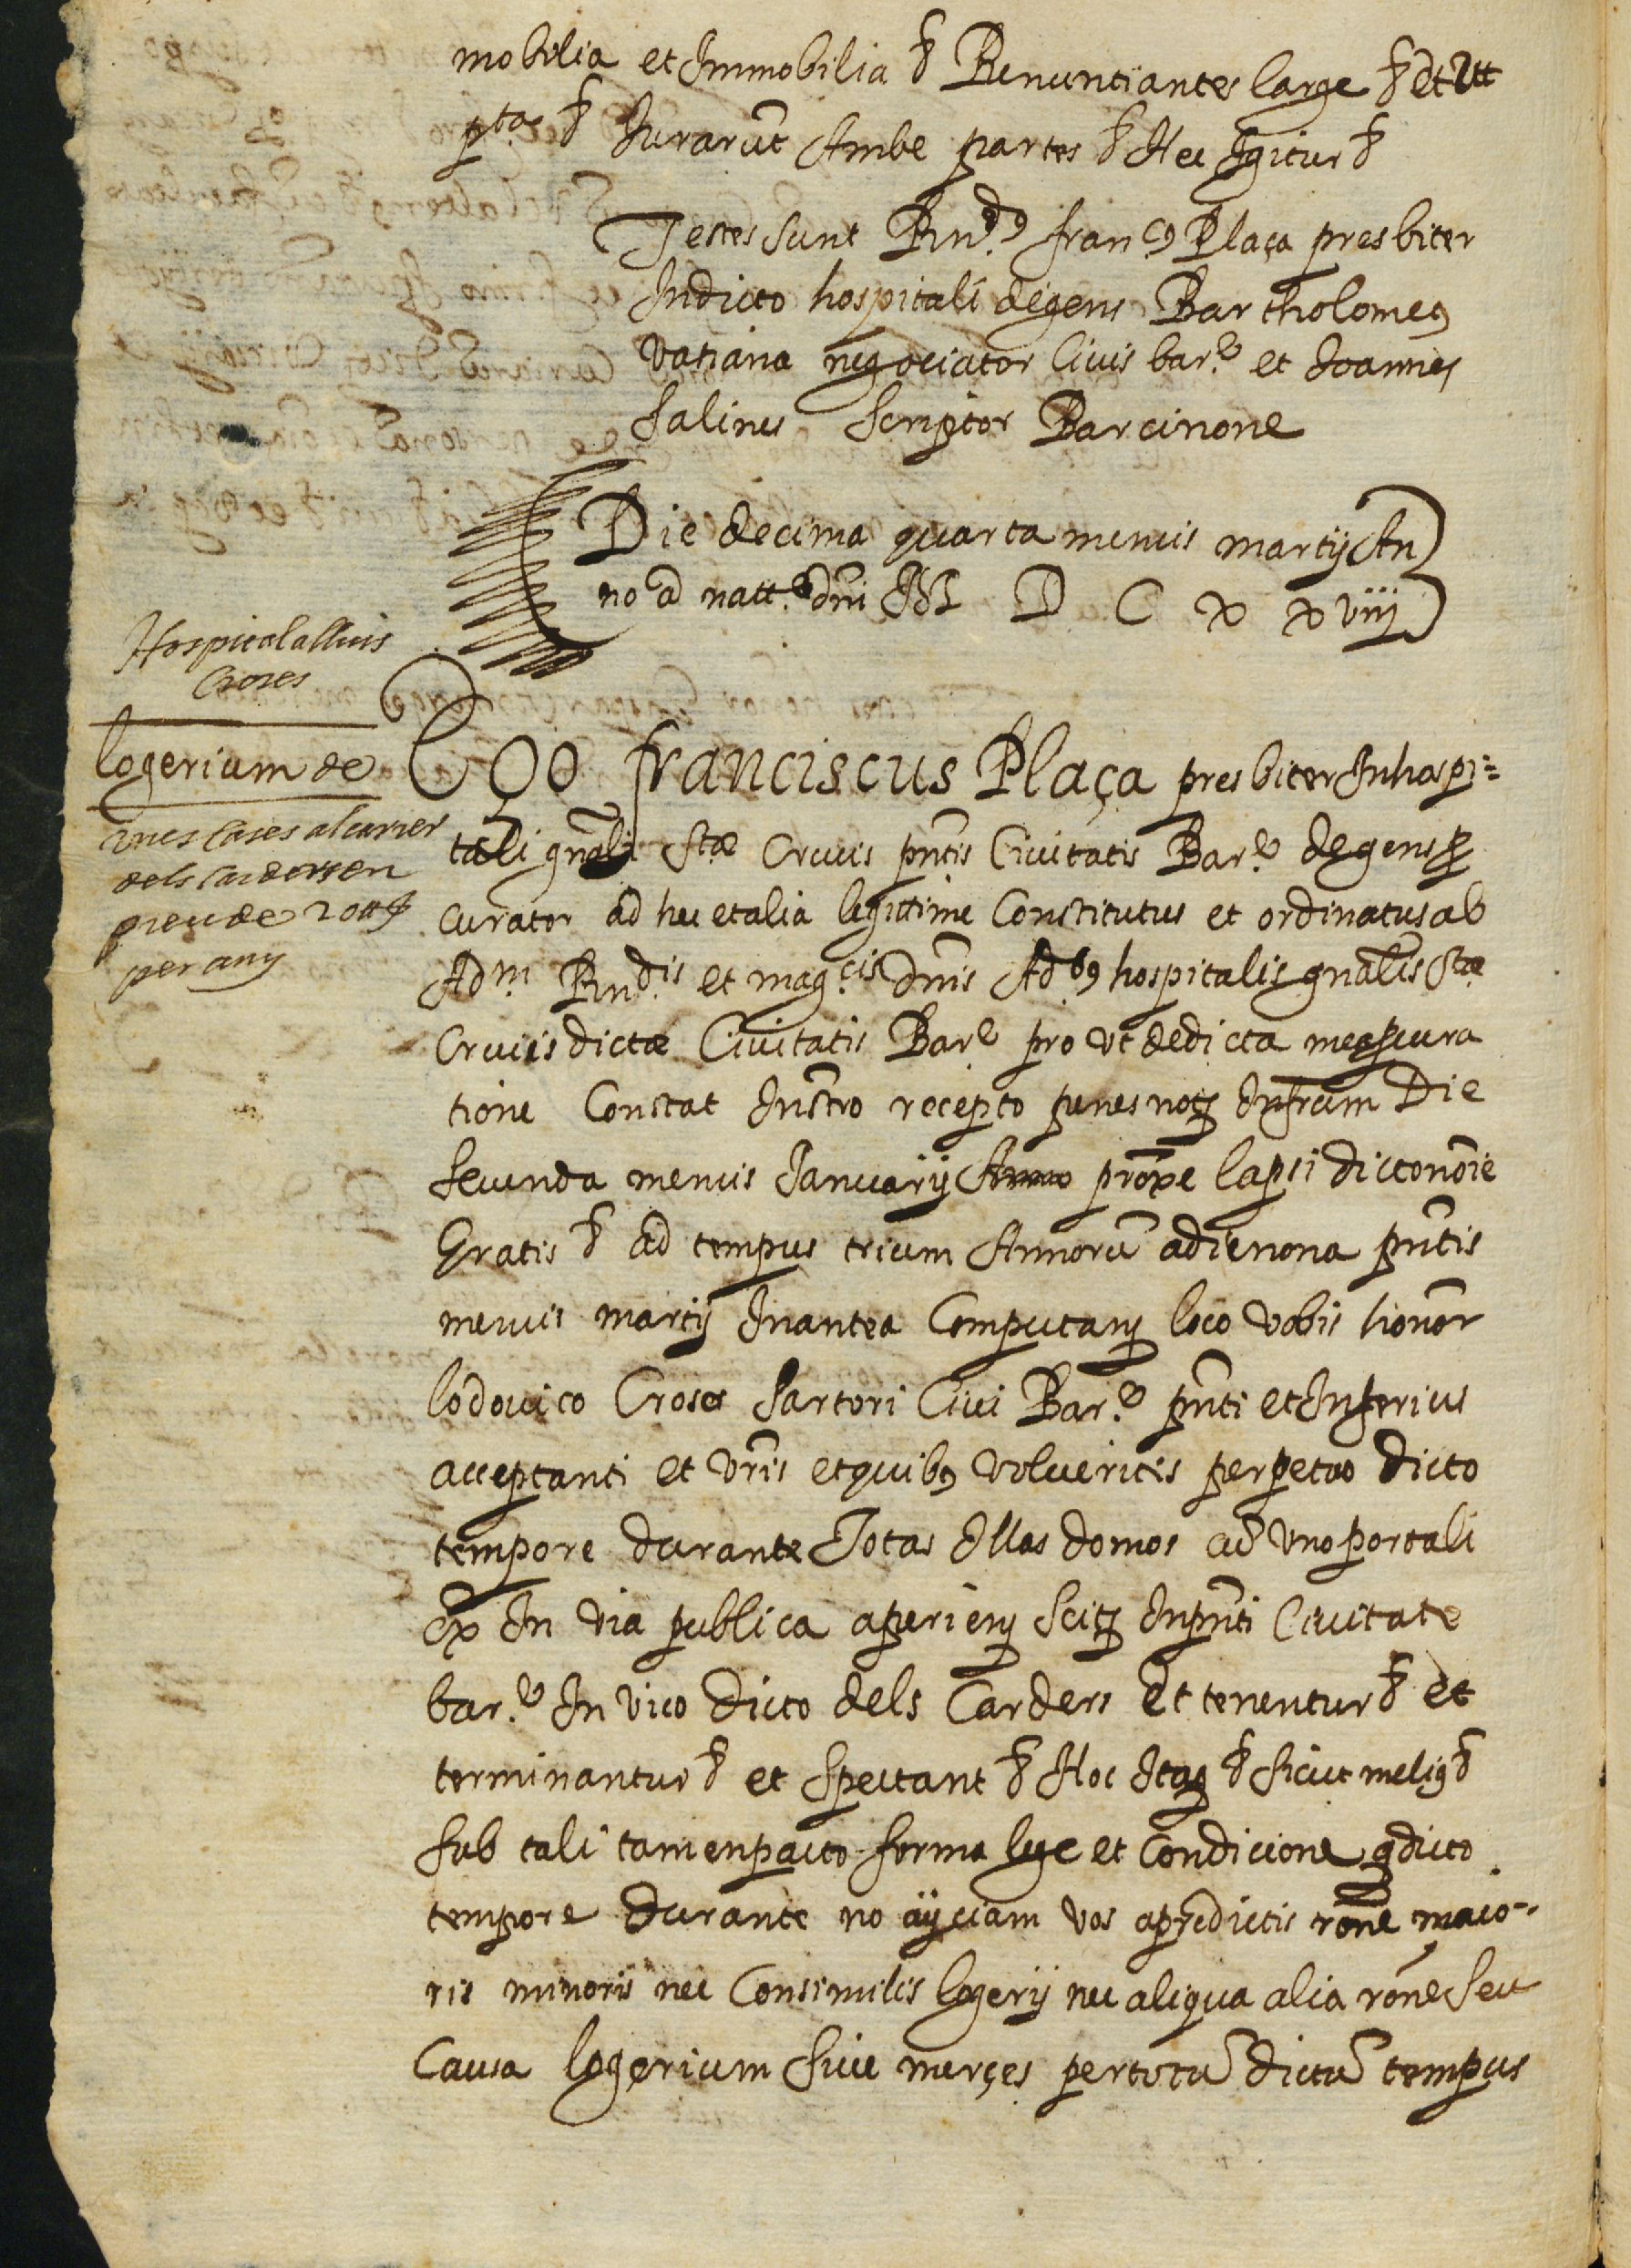 mobilia et Immobilia &ca Renuntiantes large &ca et Ut
pta &ca Jurarūt Ambe partes &ca Hec Igitur &ca
Testes sunt Rnd.9 franc9 Plaça presbiter
Indicto hospitali degens Bartholomeg
Vatiana negociator Civis bar.e et Joannes
Salines Scriptor Barcinone
Die decima quarta mensis martij An
no a natt.e Dni M D C x xviij
Hospital a lluis
Croses
logerium de
unes Cases al carrer
dels Carders en
preu de 20 ₶
per any
Ego franciscus Plaça presbiter In hospi=
tali gnāli Stæ Crucis pntis Civitatis Bar.e degens p
curator ad hec et alia legittime Constitutus et ordinatus ab
Adm Rndis et mag.cis Dnis Adb9 hospitalis gnālis Stæ
Crucis dictæ Civitatis Bare pro vt de dicta mea pcura
tione Constat Instro recepto penes notm Infrum Die
secunda mensis Januarij Anno prōxe lapsi dicto noīe
Gratis &ca ad tempus trium Annorū a die nona pntis
mensis martij In antea Computandm loco vobis honor
lodovico Croses Sartori Civi Bar.e pnti et Inferius
acceptanti et vris et quib9 volueritis perpetuo dicto
tempore durante Totas Illas domos cū vno portali
Ex In via publica aperiens scitas In pnti Civitate
bar.e In vico dicto dels Carders Et tenentur &ca et
terminantur &ca et spectant &ca Hoc Itaq &ca sicut meli9 &ca
sub tali tamen pacto forma lege et Condicione q dicto
tempore durante no ayciam vos a predictis rōne maio=
ris minoris nec Consimilis logerij nec aliqua alia rōne seu
Causa logerium sive merçes per totū dictū tempus